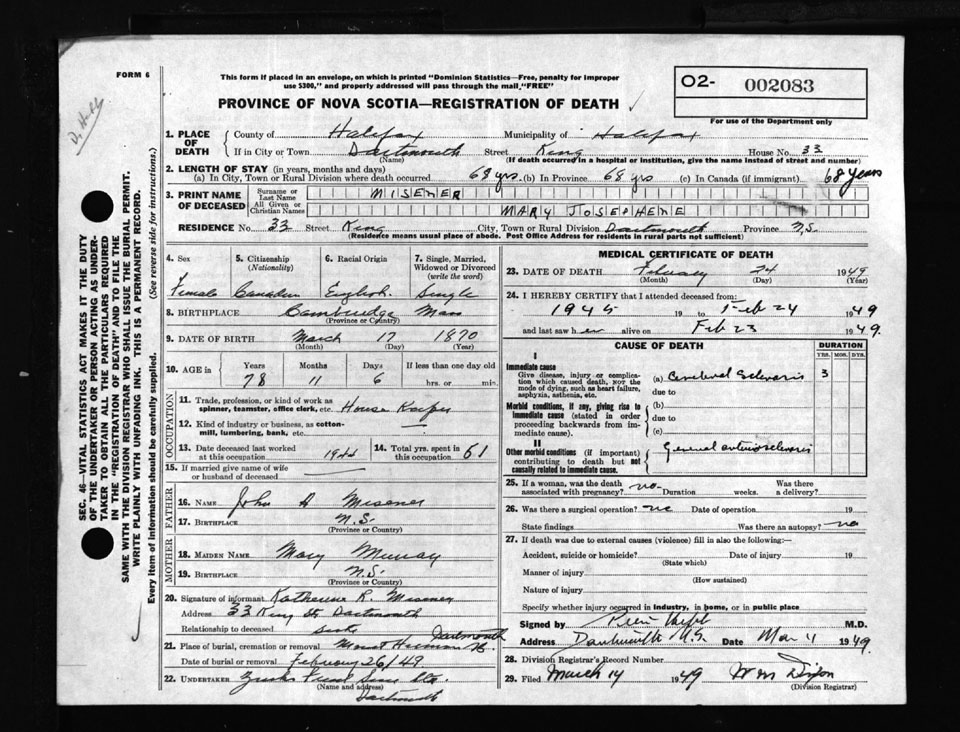 D. Hfx
FORM 6
This form if placed in an envelope, on which is printed "Dominion Statistics—Free, penalty for improper
use $300," and properly addressed will pass through the mail "FREE"
PROVINCE OF NOVA SCOTIA—REGISTRATION OF DEATH
02- 002083
For use of the Department only
SEC. 46—VITAL STATISTICS ACT MAKES IT THE DUTY
OF THE UNDERTAKER OR PERSON ACTING AS UNDER-
TAKER TO OBTAIN ALL THE PARTICULARS REQUIRED
IN THE "REGISTRATION OF DEATH" AND TO FILE THE
SAME WITH THE DIVISION REGISTRAR WHO SHALL ISSUE THE BURIAL PERMIT.
WRITE PLAINLY WITH UNFADING INK. THIS IS A PERMANENT RECORD.
Every item of information should be carefully supplied. (See reverse side for instructions.)
1. PLACE OF DEATH County of Halifax Municipality of Halifax
If in City or Town Dartmouth Street King House No. 33
(Name) (If death occurred in a hospital or institution, give the name instead of street and number)
2. LENGTH OF STAY (in years, months and days)
(a) In City, Town or Rural Division where death occurred 68 yrs. (b) In Province 68 yrs (c) In Canada (if immigrant) 68 years
3. PRINT NAME OF DECEASED Surname or Last Name MISENER
All Given or Christian Names MARY JOSEPHENE
RESIDENCE No. 33 Street King City, Town or Rural Division Dartmouth Province N.S.
(Residence means usual place of abode. Post Office Address for residents in rural parts not sufficient)
4. Sex 5. Citizenship (Nationality) 6. Racial Origin 7. Single, Married, Widowed or Divorced (write the word)
Female Canadian English Single
8. BIRTHPLACE Cambridge Mass
(Province or Country)
9. DATE OF BIRTH March 17 1870
(Month) (Day) (Year)
10. AGE in Years Months Days If less than one day old
78 11 6 hrs. or min.
OCCUPATION
11. Trade, profession or kind of work as
spinner, teamster, office clerk, etc. House Keeper
12. Kind of industry or business, as cotton-
mill, lumbering, bank, etc.
13. Date deceased last worked at this occupation 1944 14. Total yrs. spent in this occupation 51
15. If married give name of wife
or husband of deceased
FATHER
16. NAME John A Misener
17. BIRTHPLACE N.S.
(Province or Country)
MOTHER
18. MAIDEN NAME Mary Murray
19. BIRTHPLACE N.S.
(Province or Country)
20. Signature of informant Katherine R. Misener
Address 33 King St. Dartmouth
Relationship to deceased sister
21. Place of burial, cremation or removal Mount Hermon Dartmouth
Date of burial or removal February 26/49
22. UNDERTAKER
(Name and address)
Dartmouth
MEDICAL CERTIFICATE OF DEATH
23. DATE OF DEATH February 24 1949
(Month) (Day) (Year)
24. I HEREBY CERTIFY that I attended deceased from:
1945 19 to Feb 24 1949
and last saw her alive on Feb 23 1949.
CAUSE OF DEATH DURATION
YRS. MOS. DYS.
I
Immediate cause
Give disease, injury or compli-
cation which caused death, NOT the
mode of dying, such as heart failure,
asphyxia, asthenia, etc.
(a) Cerebral Sclerosis 3
due to
Morbid conditions, if any, giving rise to
immediate cause (stated in order
proceeding backwards from im-
mediate cause).
(b)
due to
(c)
II
Other morbid conditions (if important)
contributing to death but not
causally related to immediate cause.
General arteriosclerosis
25. If a woman, was the death associated with pregnancy? no Duration weeks. Was there a delivery?
26. Was there a surgical operation? no Date of operation 19
State findings Was there an autopsy? no
27. If death was due to external causes (violence) fill in also the following:—
Accident, suicide or homicide? Date of injury 19
(State which)
Manner of injury
(How sustained)
Nature of injury
Specify whether injury occurred in industry, in home, or in public place
Signed by M.D.
Address Dartmouth N.S. Date Mar 11 1949.
28. Division Registrar's Record Number
29. Filed March 14 1949 Wm Dixon
(Division Registrar)